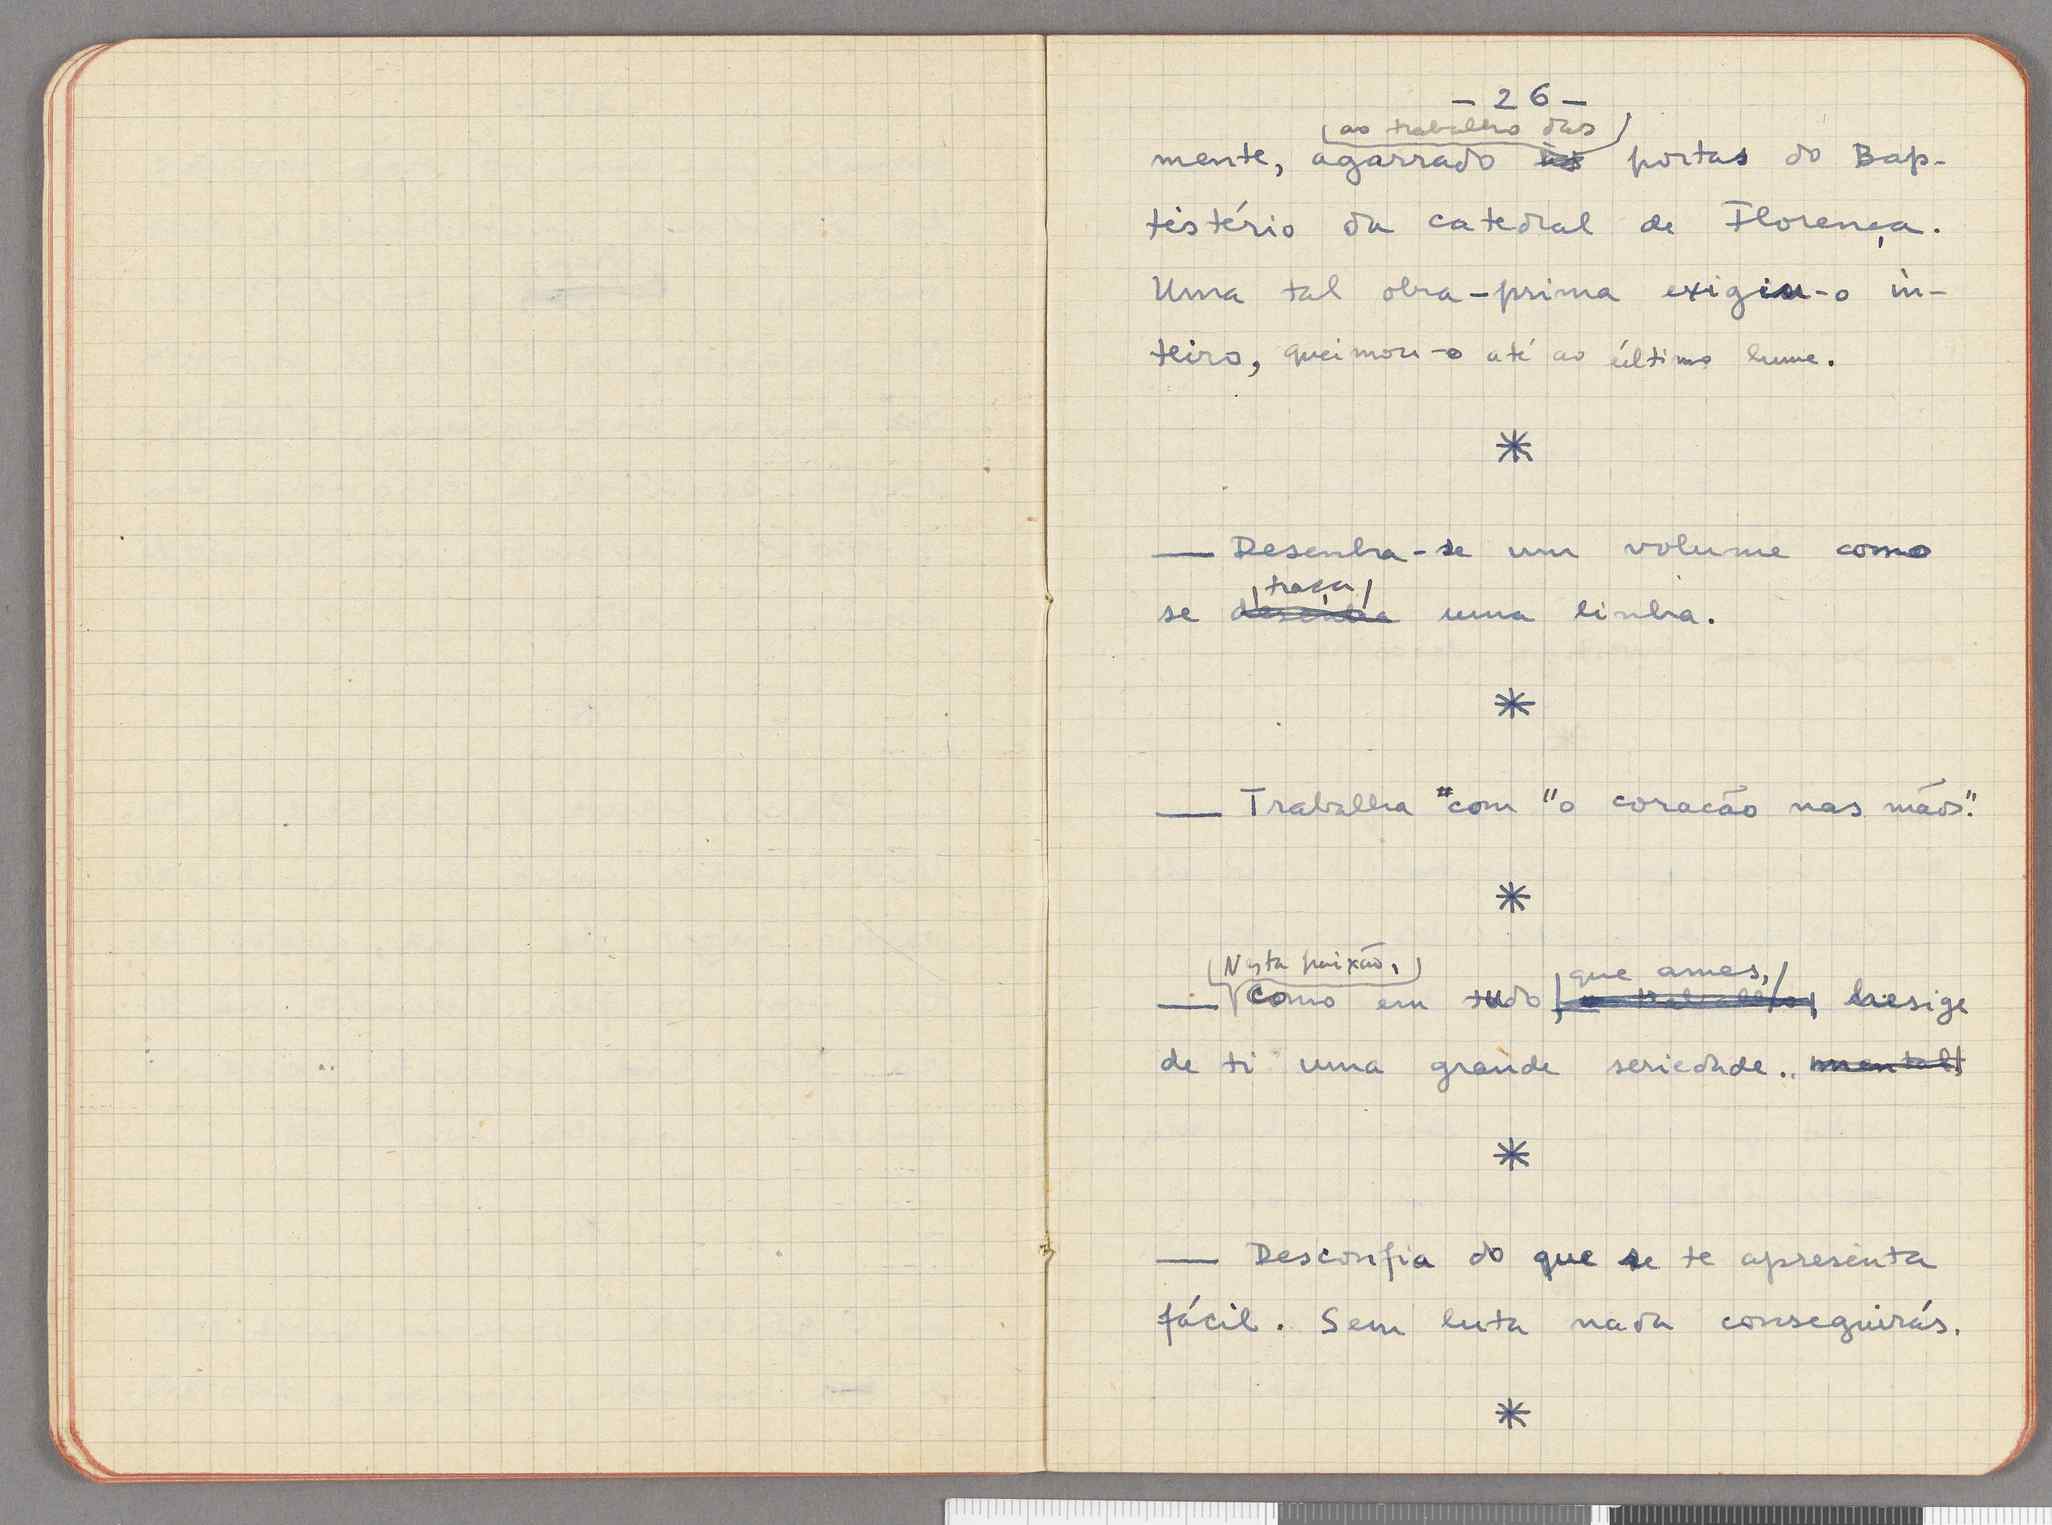 - 26 -
ao trabalho das
mente, agarrado às portas do Bap-
tistério da catedral de Florença.
Uma tal obra-prima exigiu-o in-
teiro, queimou-o até ao último lume.
*
— Desenha-se um volume como
traça
se desenha uma linha.
*
— Trabalha "com "o coracão nas mãos".
*
Nesta paixão, que ames,
— Como em tudo, o trabalho,
de ti uma grande seriedade. mental
*
— Desconfia do que se te apresenta
fácil. Sem luta nada conseguirás.
*